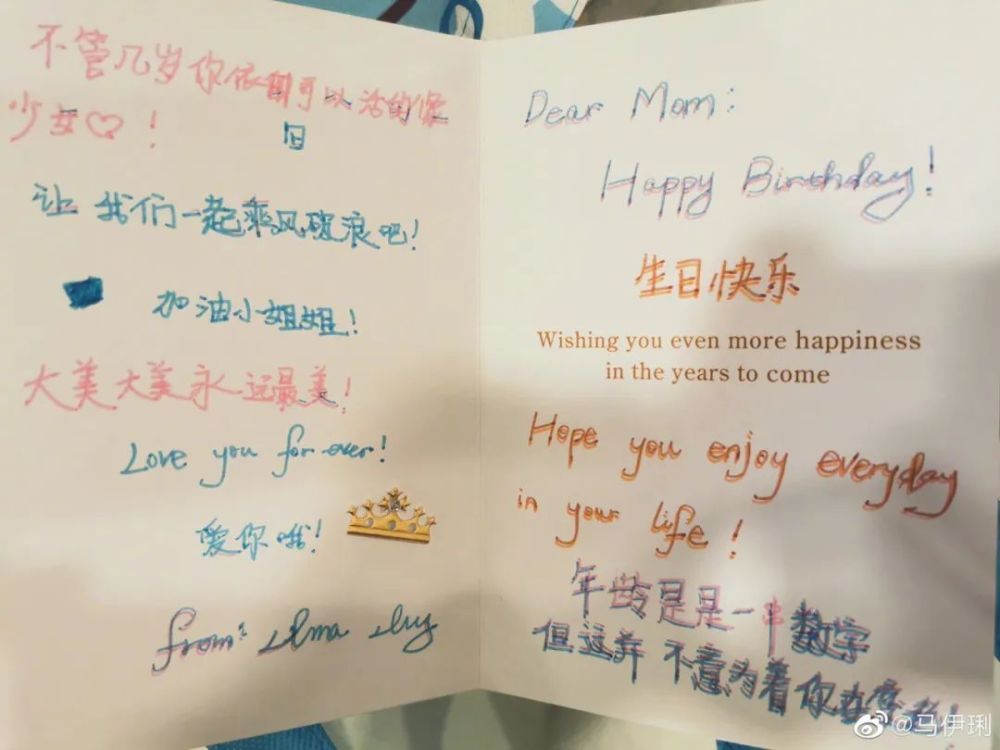 不管几岁你依旧可以活的像
少女♡!
旧
让我们一起乘风破浪吧!
加油小姐姐!
大美大美永远最美!
Love you for ever!
爱你哦!
from:
Dear Mom:
Happy Birthday!
生日快乐
Wishing you even more happiness
in the years to come
Hope you enjoy everyday
in your life!
年龄是是一串数字
但这并不意为着你在
@马伊琍